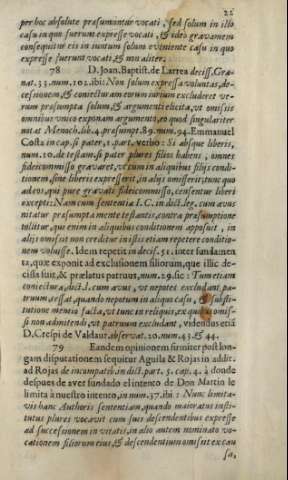 22
per hoc absolute præsumuntur vocati, sed solum in illo
casu in quo fuerunt expresse vocati, & ideo gravamen
consequitur eis in suntum solum eviniente casu in quo
expresse fuerunt vocati & non aliter.
78 D. Joan. Baptist. de Larrea decis. Gra-
nat. 33. num. 102. ibi: Non solum expressa voluntas, de-
cessionem, & coniecturam eorum iurium excluderet ve-
rum præsumpta solum, & argumentis elicita, vt omisis
omnibus vnico exponam argumento, eo quod singulariter
notat Menoch. lib. 4. præsumpt. 89. num. 94. Emmanuel
Costa in cap. si pater, 1. part. verbo: Si absque liberis,
num. 10. de testam. si pater plures filios habens, omnes
fideicommisso gravaret, vt cum in aliquibus filijs condi-
tionem, sine liberis expresserit, in alijs omisserit; tunc quo
ad eos, qui pure gravati fideicommisso, censentur liberi
excepti: Nam cum sententia I. C. in dict. leg. cum avus
nitatur præsumpta mente testantis, contra præsumptione
tollitur, quæ enim in aliquibus conditionem apposuit, in
alijs omisit non creditur in istis etiam repetere conditio-
nem voluisse. Idem repetit in decis. 51. inter fundamen
ta, quæ exponit ad exclusionem filiorum, quæ illic de-
cisa fuit, & prælatus patruus, num. 29. sic: Tum etiam
coniectura, dict. l. cum avus, vt nepotes excludant pa-
truum, cessat, quando nepotum in aliquo casu, & substi-
tutione mentio facta, vt tunc in reliquis, ex quibus omis-
si non admitendi, vt patruum excludant, videndus etiã
D. Crespi de Valdaur. observat. 20. num. 43. & 44.
79 Eandem opinionem firmiter post lon-
gam disputationem sequitur Aguila & Rojas in addit.
ad Rojas de incumpatib. in dict. part. 5. cap. 4. à donde
despues de aver fundado el intento de Don Martin le
limita à nuestro intento, in num. 37. ibi: Nunc limita-
vis hanc Authoris sententiam, quando maioratus insti-
tutus plures vocavit cum suis descendentibus expresse
ad successionem in vitati, in alio autem nominato vo-
cationem filiorum eius, & descendentium omissit ex cau
sa,